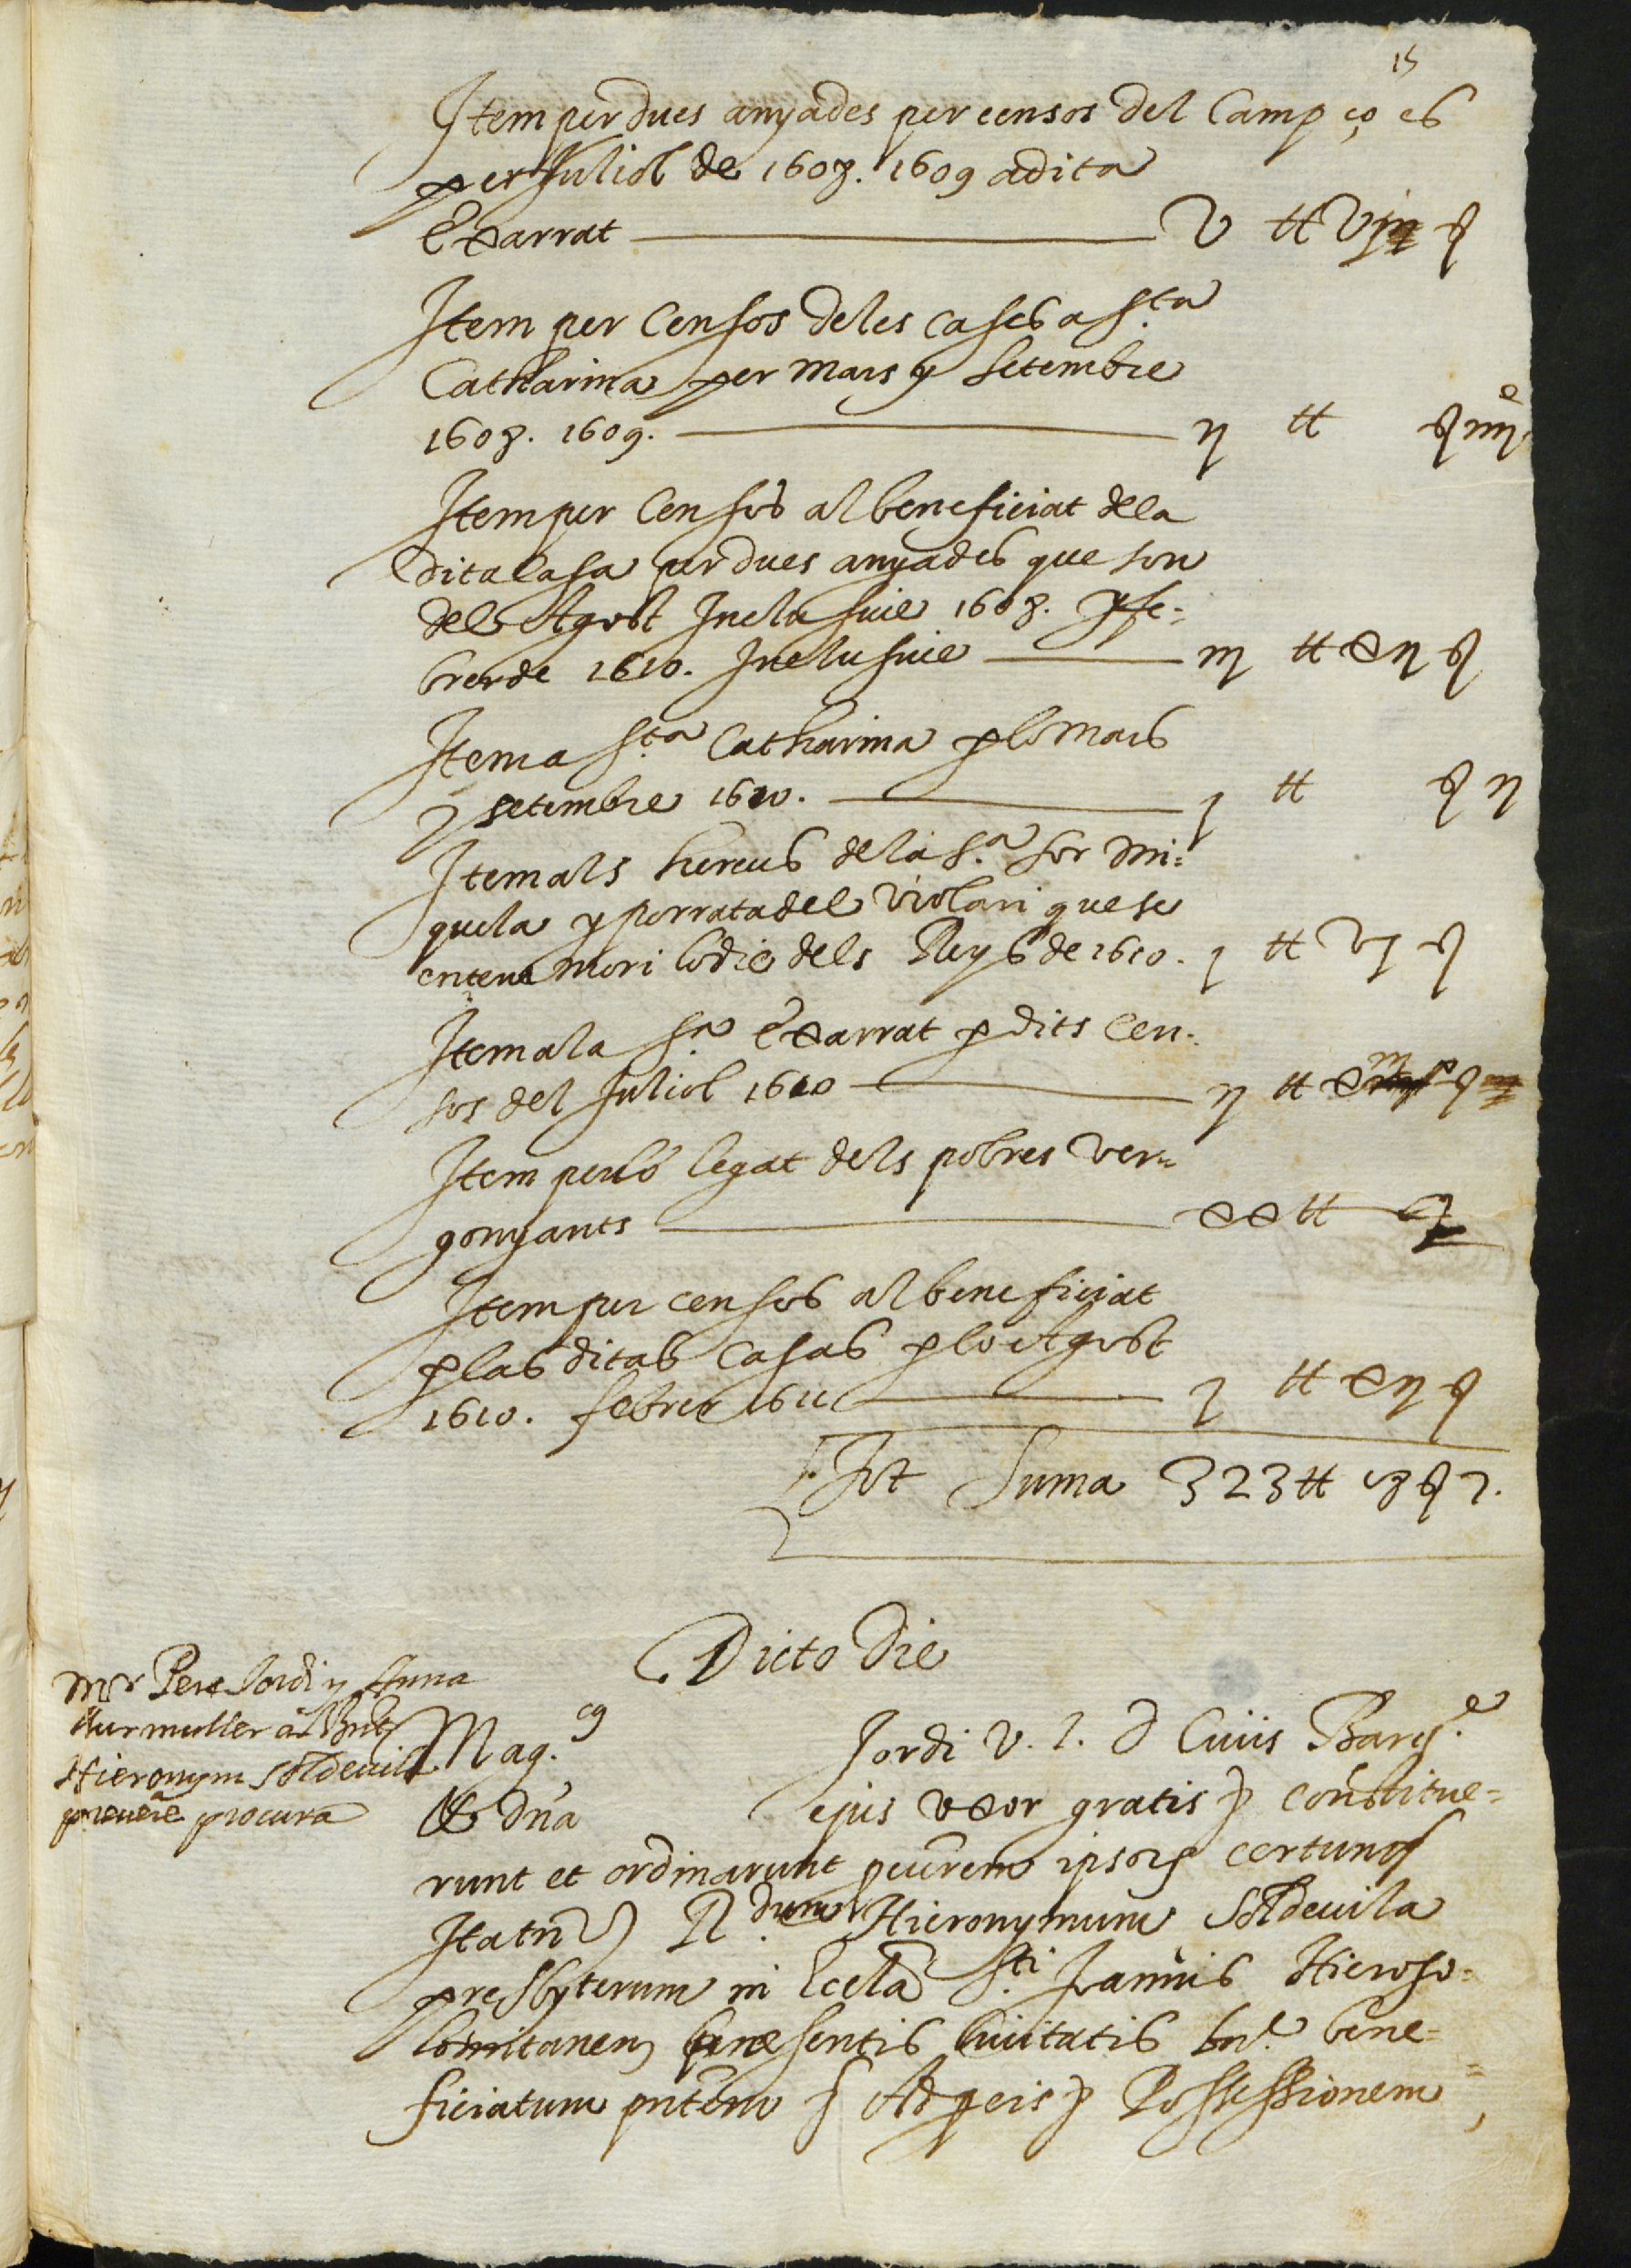 15
Item per dues anyades per censos del Camp ço es
per Juliol de 1608. 1609 a dita
Exarrat v ℔ vj ß
Item per Censos de les cases a Sta
Catharina per mars y setembre
1608. 1609. ij ℔ ß iiij
Item per Censos al beneficiat de la
dita casa per dues anyades que son
del Agost Inclusive 1608. y fe=
brer de 1610. Inclusive iij ℔ xij ß
Item a Sta Catharina p lo mars
y setembre 1610. j ℔ ß ij
Item als hereus de la Sa. sor Mi=
quela y porrata del violari que se
enten mori lo die dels Reys de 1610. j ℔ vj ß
Item a la Sra Exarrat p dits Cen=
sos del Juliol 1610 ij ℔ ß
Item per lo legat dels pobres ver=
gonyants xx ℔ ß
Item per censos al beneficiat
p las ditas Casas p lo Agost
1610. febrer 1611 j ℔ xij ß
Tot Suma 323 ℔ 18 ß 7.
Dicto die
Mr Pere Jordi y Anna
sur muller a
Hieronym Soldevila
prevere procura
Mag.cus Jordi V. J. D Civis Barc.e
& Dna ejus uxor gratis constitue=
runt et ordinarunt pcurem ipsor certum
Ita tn R.dum Hieronymum Soldevila
presbyterum in Eccla Sti Joannis Hieroso=
lomitanen presentis Civitatis bne. bene=
ficiatum pntem Ad Possessionem